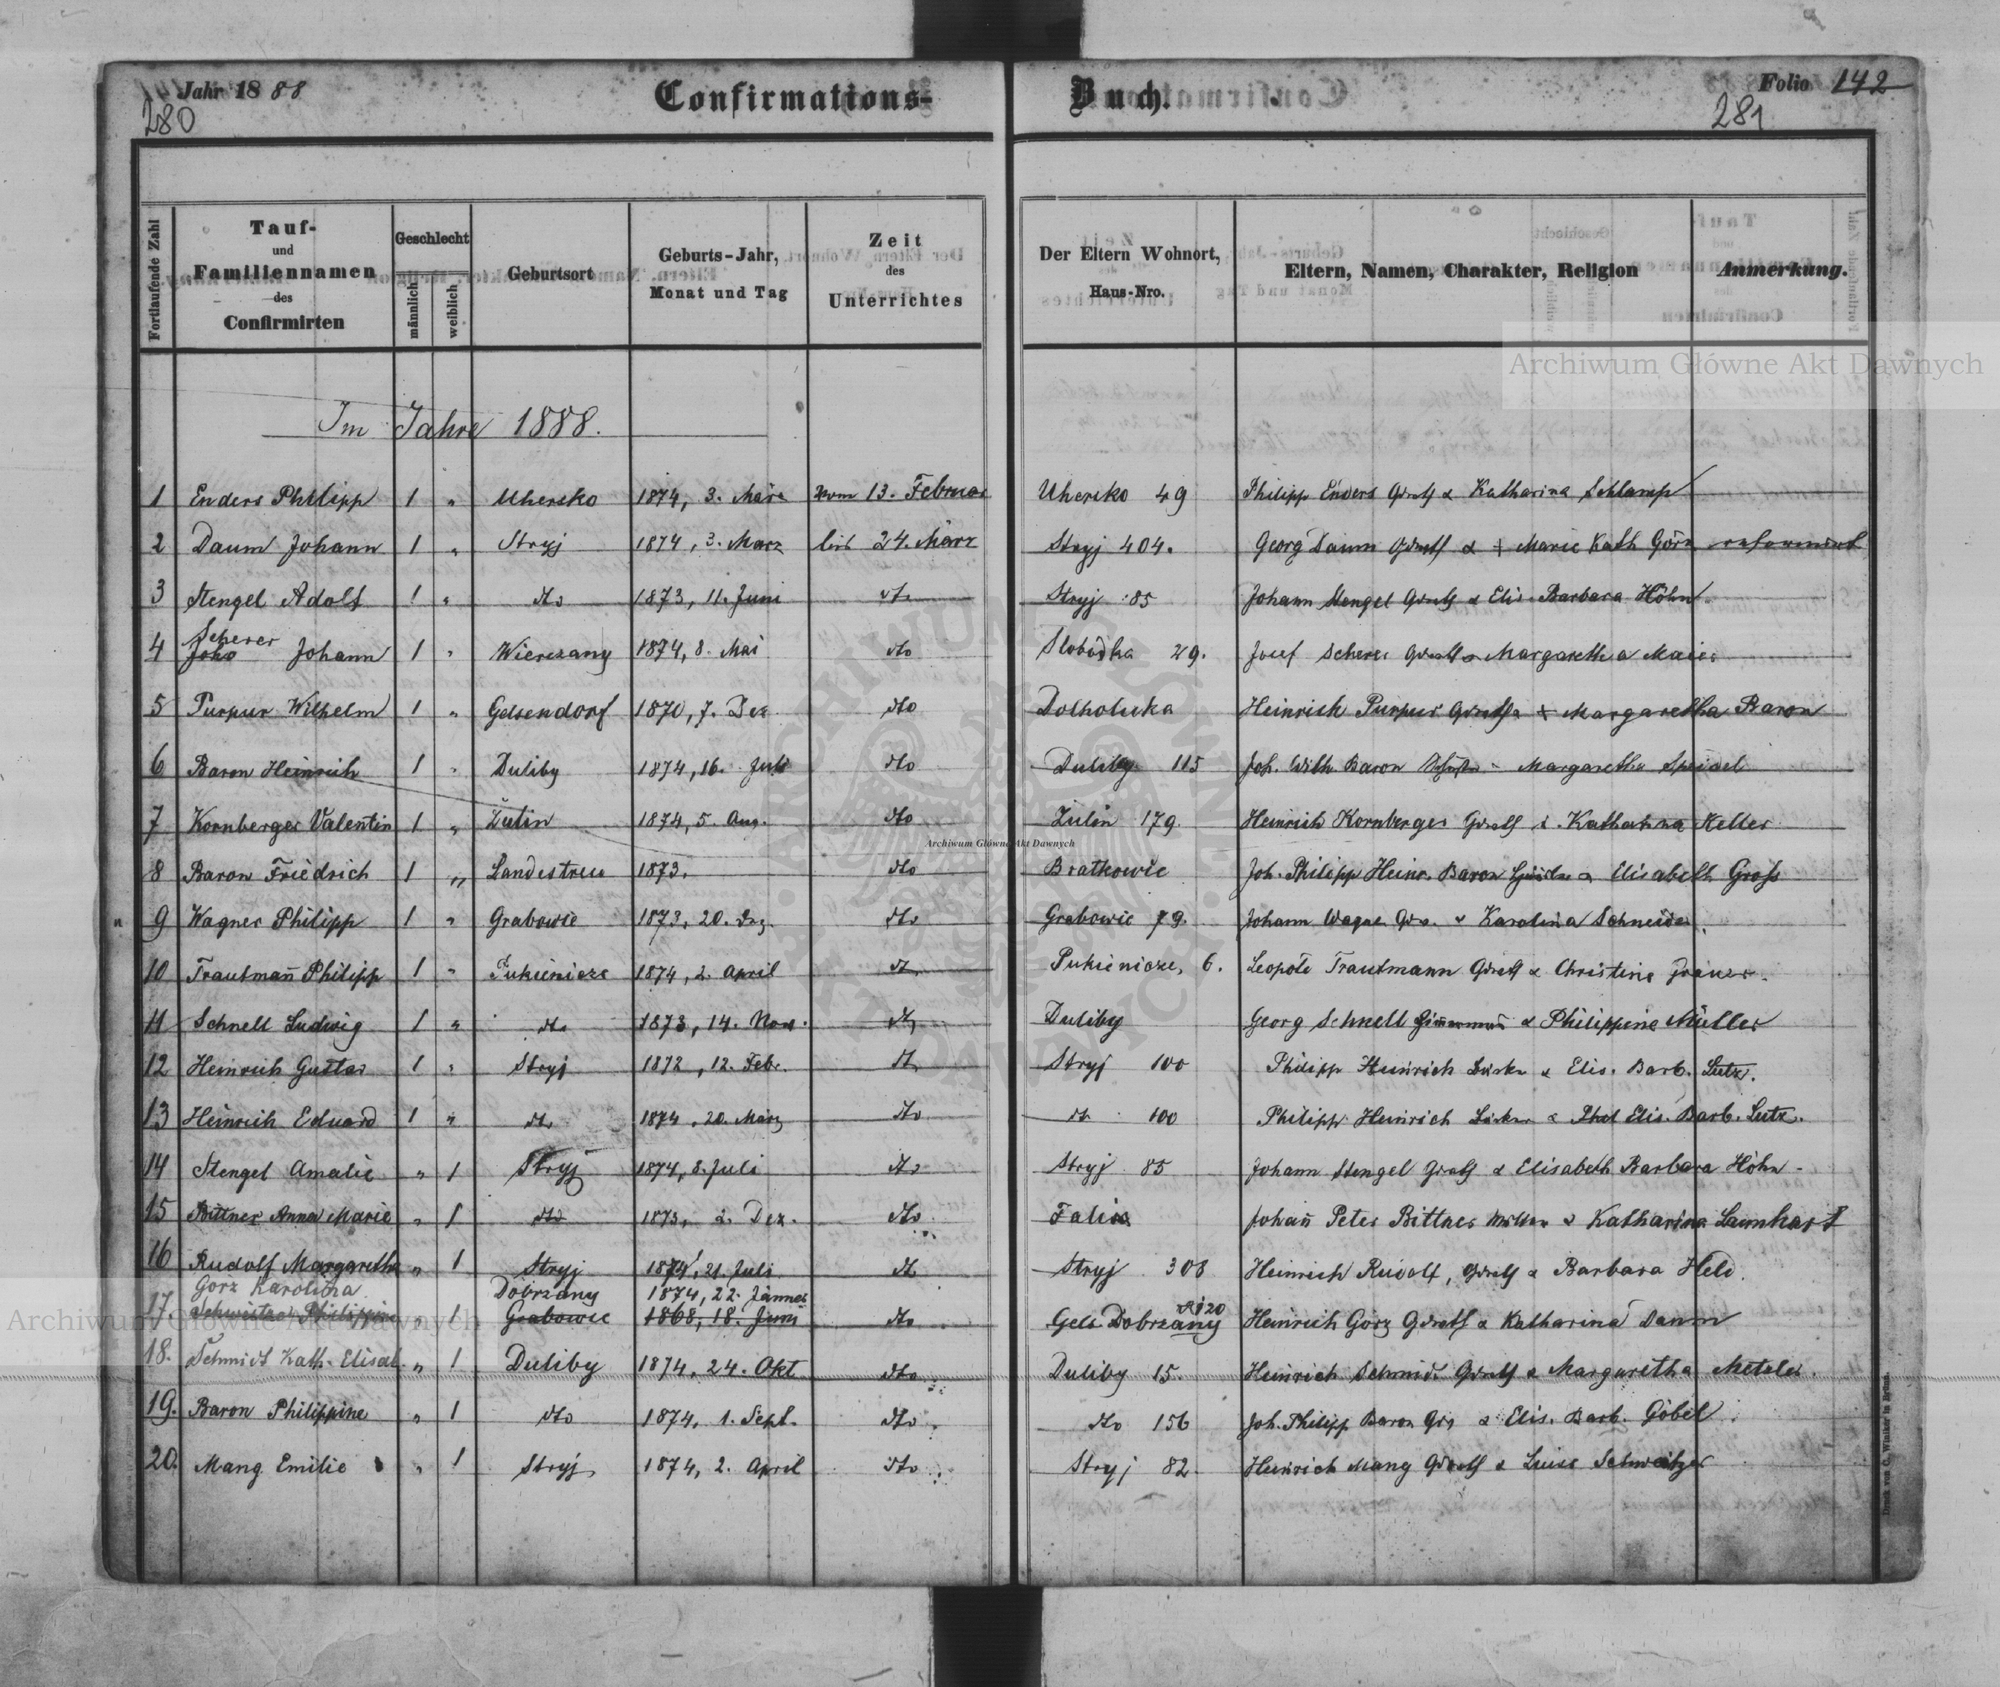 Jahr 1888
280
Confirmations-
Buch.
Folio 142
281
Fortlaufende Zahl
Tauf- und Familiennamen des Confirmirten
Geschlecht
männlich
weiblich
Geburtsort
Geburts-Jahr, Monat und Tag
Zeit des Unterrichtes
Der Eltern Wohnort, Haus-Nro.
Eltern, Namen, Charakter, Religion
Anmerkung.
Im Jahre 1888.
1 Enders Philipp 1 " Uhersko 1874, 3. März vom 13. Februar Uhersko 49 Philipp Enders Grndb & Katharina Schlamp
2 Daum Johann 1 " Stryj 1874, 3. März bis 24. März Stryj 404. Georg Daum & + Marie Kath Görz reformirt
3 Stengel Adolf 1 " dto 1873, 11. Juni dto Stryj 85 Johann Stengel & Elis. Barbara Höhn
4 Scherer Johann 1 " Wierczany 1874, 8. Mai dto Slobodka 29. Josef Scherer & Margaretha Maier
5 Purpur Wilhelm 1 " Gelsendorf 1870, 7. Dez dto Dolholuka Heinrich Purpur & + Margaretha Baron
6 Baron Heinrich 1 " Duliby 1874, 16. Juli dto Duliby 115 Joh. Wilh. Baron Margaretha Speidel
7 Kornberger Valentin 1 " Zulin 1874, 5. Aug. dto Zulin 179. Heinrich Kornberger & Katharina Keller
8 Baron Friedrich 1 " Landestreu 1873. dto Bratkowic Joh. Philipp Heinr. Baron & Elisabeth Groß
9 Wagner Philipp 1 " Grabowic 1873, 20. Dez. dto Grabowic 79. Johann Wagner & Karolina Schneider
10 Trautmañ Philipp 1 " Pukienicze 1874, 2. April dto Pukienicze, 6. Leopold Trautmann & Christine
11 Schnell Ludwig 1 " dto 1873, 14. Nov. dto Duliby Georg Schnell Zimmermañ & Philippine Müller
12 Heinrich Gustav 1 " Stryj 1872, 12. Febr. dto Stryj 100 Philipp Heinrich & Elis. Barb. Lutz.
13 Heinrich Eduard 1 " dto 1874, 20. März dto dto 100 Philipp Heinrich & Elis. Barb. Lutz.
14 Stengel Amalie " 1 Stryj 1874, 8. Juli dto Stryj 85 Johann Stengel & Elisabeth Barbara Höhn
15 Bittner Anna Marie " 1 dto 1873, 2. Dez. dto Johañ Peter Bittner & Katharina Lamhart
16 Rudolf Margaretha " 1 Stryj 1874, 21. Juli dto Stryj 308 Heinrich Rudolf, & Barbara Held.
Görz Karolina Dobrzany 1874, 22. Jänner
17. Schweitzer Philippine " 1 Grabowic 1868, 18. Juni dto Gels. Dobrzany Heinrich Görz & Katharina Daum
18. Schmidt Kath. Elisab. " 1 Duliby 1874, 24. Okt dto Duliby 15. Heinrich Schmidt & Margaretha Metzler.
19. Baron Philippine " 1 dto 1874, 1. Sept. dto dto 156 Joh. Philipp Baron & Elis. Barb. Göbel
20. Mang Emilie " 1 Stryj 1874, 2. April dto Stryj 82. Heinrich Mang & Luise Schweitzer
Druck von C. Winiker in Brünn.
Archiwum Główne Akt Dawnych
Archiwum Główne Akt Dawnych
Archiwum Główne Akt Dawnych